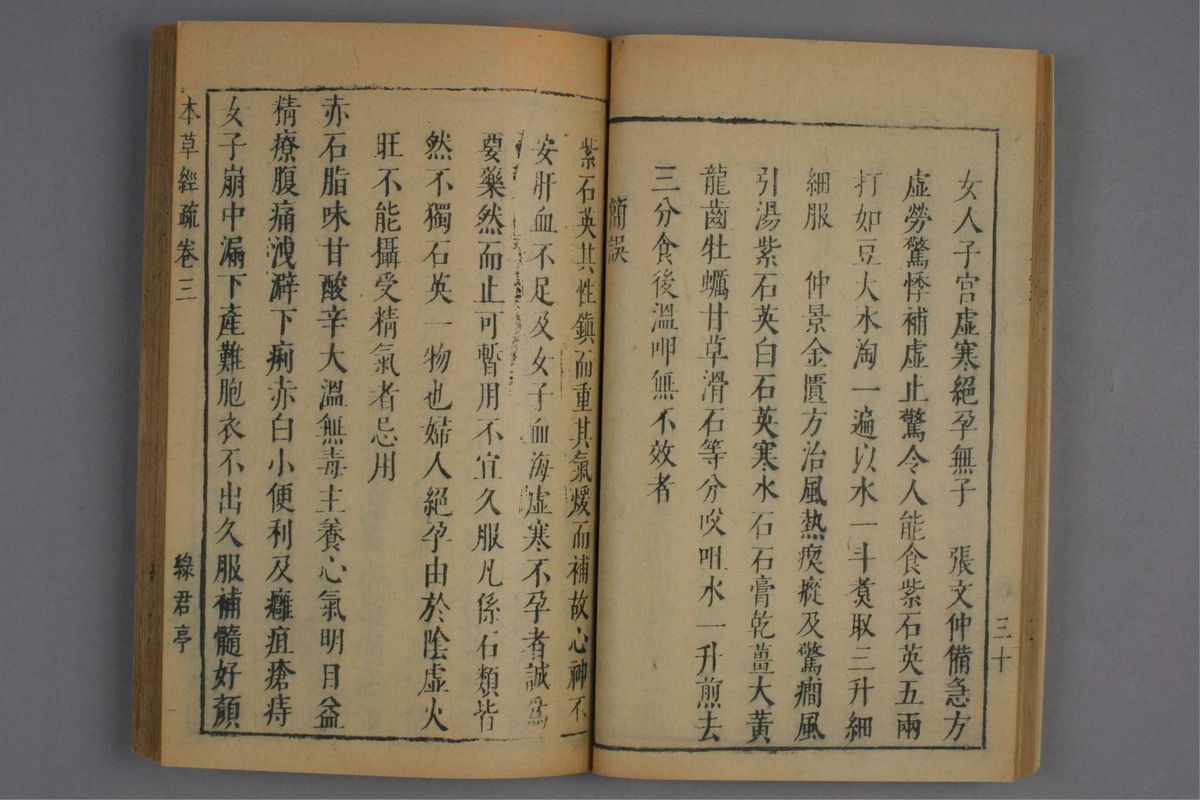 三十
女人子宮虛寒絕孕無子　張文仲備急方
虛勞驚悸補虛止驚令人能食紫石英五兩
打如豆大水淘一遍以水一斗煑取三升細
細服　仲景金匱方治風熱瘈瘲及驚癎風
引湯紫石英白石英寒水石石膏乾薑大黃
龍齒牡蠣甘草滑石等分㕮咀水一升煎去
三分食後溫呷無不效者
簡誤
紫石英其性鎮而重其氣煖而補故心神不
安肝血不足及女子血海虛寒不孕者誠爲
要藥然而止可暫用不宜久服凡係石類皆
然不獨石英一物也婦人絕孕由於陰虛火
旺不能攝受精氣者忌用
赤石脂味甘酸辛大溫無毒主養心氣明目益
精療腹痛洩澼下痢赤白小便利及癰疽瘡痔
女子崩中漏下產難胞衣不出久服補髓好顏
本草經疏卷三
綠君亭